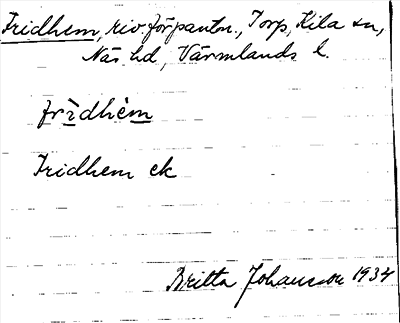 Fridhem, riv. förpantn., Torp, Kila sn,
Näs hd, Värmlands l.
frìdhèm
Fridhem ek
Britta Johansson 1934